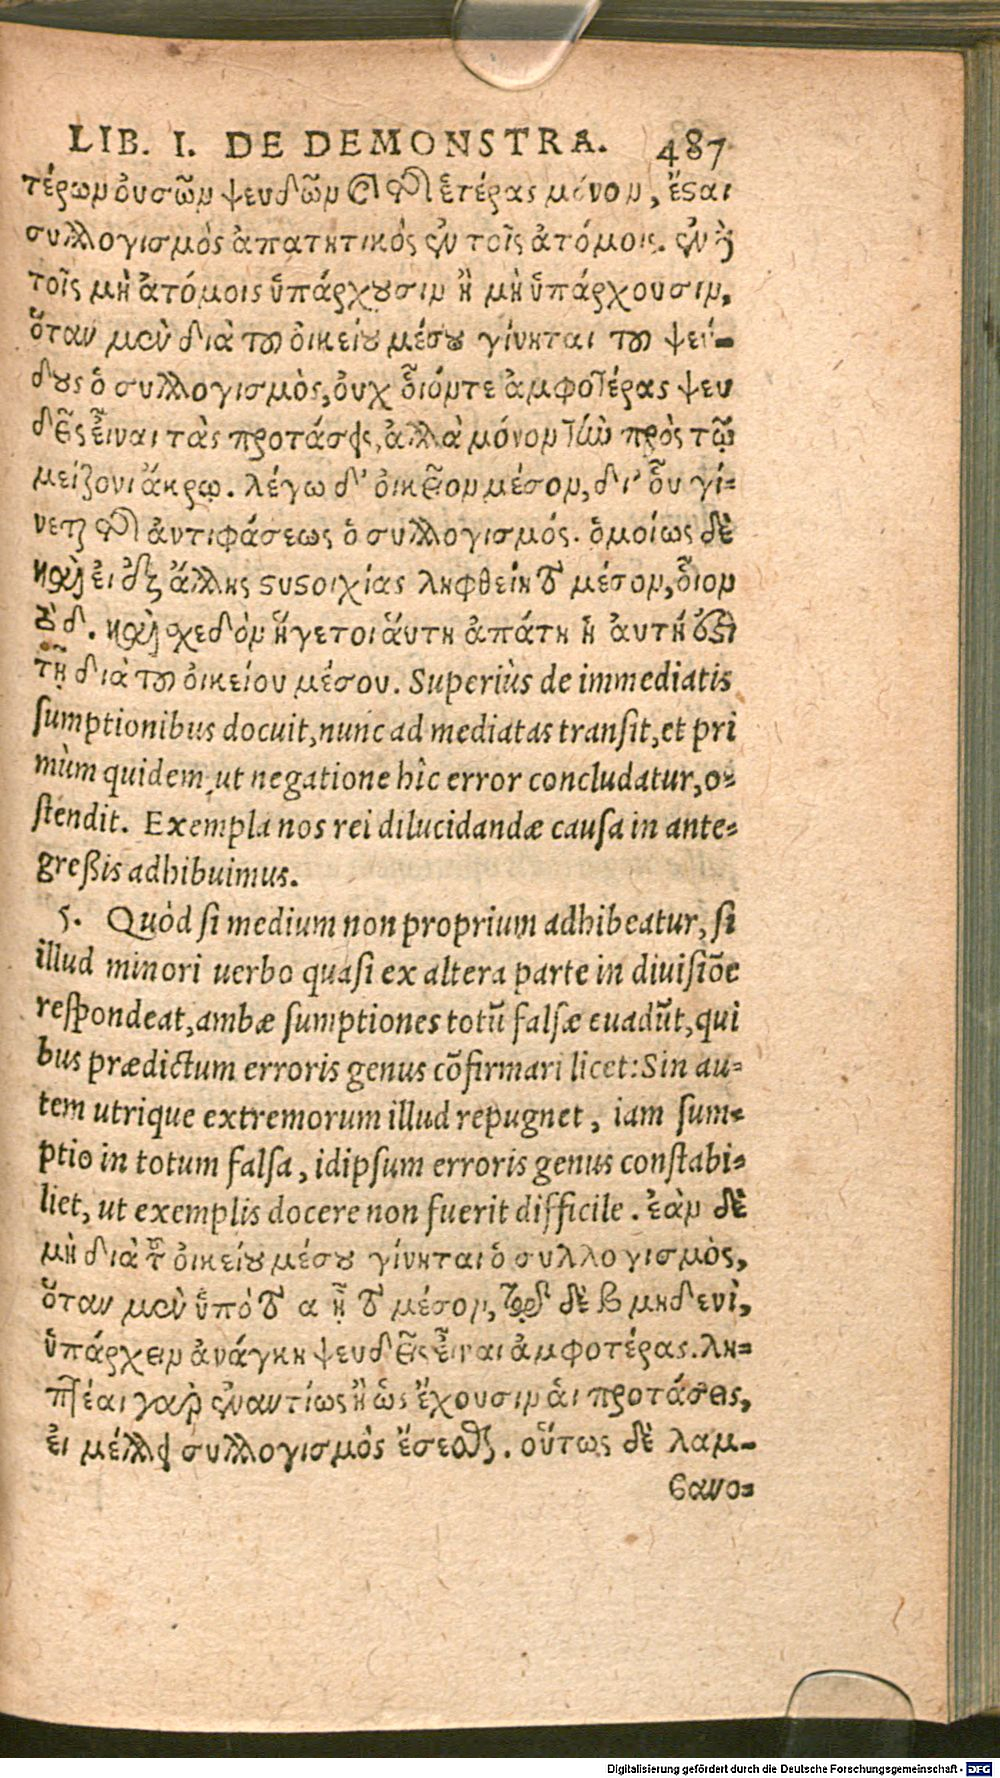 LIB. I. DE DEMONSTRA. 487
τέρων οὐσῶν ψευδῶν καὶ τῆς ἑτέρας μόνον, ἔσται
συλλογισμὸς ἀπατητικός ἐν τοῖς ἀτόμοις. ἐν δὲ
τοῖς μὴ ἀτόμοις ὑπάρχουσιν ἢ μὴ ὑπάρχουσιν,
ὅταν μὲν διὰ τοῦ οἰκείου μέσου γίνηται τοῦ ψεύ-
δους ὁ συλλογισμὸς, οὐχ οἷόντε ἀμφοτέρας ψευ
δεῖς εἶναι τὰς προτάσεις, ἀλλὰ μόνον τὴν πρὸς τῷ
μείζονι ἄκρῳ. λέγω δ' οἰκεῖον μέσον, δι' οὗ γί-
νεται τῆς ἀντιφάσεως ὁ συλλογισμός. ὁμοίως δὲ
καὶ εἰ ἐξ ἄλλης συστοιχίας ληφθείη τὸ μέσον, οἷον
τὸ δ. καὶ σχεδὸν ἥγετοι αὕτη ἀπάτη ἡ αὐτή ἐστι
τῇ διὰ τοῦ οἰκείου μέσου. Superiùs de immediatis
sumptionibus docuit, nunc ad mediatas transit, et pri
mùm quidem ut negatione hîc error concludatur, o-
stendit. Exempla nos rei dilucidandæ causa in ante-
greßis adhibuimus.
5. Quòd si medium non proprium adhibeatur, si
illud minori uerbo quasi ex altera parte in diuisiõe
respondeat, ambæ sumptiones totũ falsæ euadũt, qui
bus prædictum erroris genus cõfirmari licet: Sin au-
tem utrique extremorum illud repugnet, iam sum-
ptio in totum falsa, idipsum erroris genus constabi-
liet, ut exemplis docere non fuerit difficile. ἐὰν δὲ
μὴ διὰ τοῦ οἰκείου μέσου γίνηται ὁ συλλογισμὸς,
ὅταν μὲν ὑπὸ τὸ α ᾖ τὸ μέσον, τῷ δὲ β μηδενὶ,
ὑπάρχειν ἀνάγκη ψευδεῖς εἶναι ἀμφοτέρας. λη-
πτέαι γὰρ ἐναντίως ἢ ὡς ἔχουσιν αἱ προτάσεις,
εἰ μέλλει συλλογισμὸς ἔσεσθαι. οὕτως δὲ λαμ-
βανο-
Digitalisierung gefördert durch die Deutsche Forschungsgemeinschaft - DFG